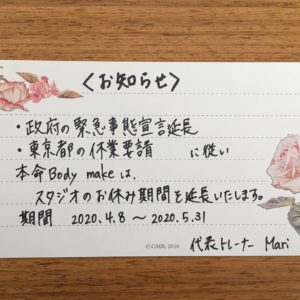 〈お知らせ〉
・政府の緊急事態宣言延長
・東京都の休業要請 に従い
本命Body makeは、
スタジオのお休み期間を延長いたします。
期間 2020.4.8 〜 2020.5.31
©CMB, 2018
代表トレーナー Mari